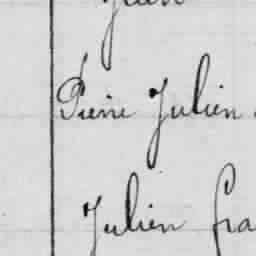 Pierre Julien
Julien fra